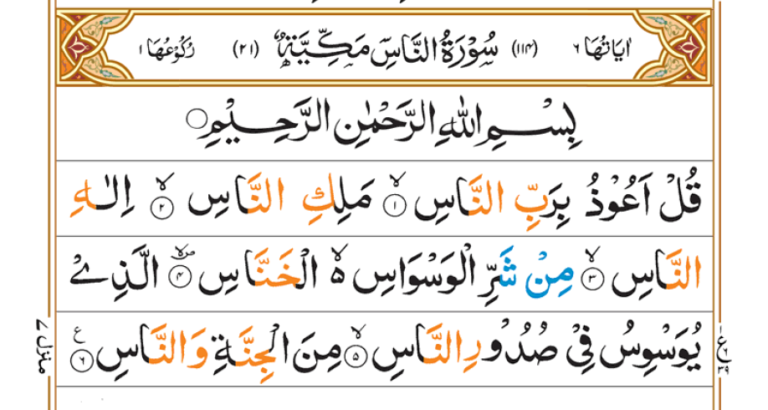 اٰيَاتُهَا ٦ (١١٤) سُوْرَةُ النَّاسِ مَكِّيَّةٌ (٢١) رُكُوْعُهَا ١
بِسْمِ اللّٰهِ الرَّحْمٰنِ الرَّحِيْمِ
قُلْ اَعُوْذُ بِرَبِّ النَّاسِ ۙ﴿١﴾ مَلِكِ النَّاسِ ۙ﴿٢﴾ اِلٰهِ
النَّاسِ ۙ﴿٣﴾ مِنْ شَرِّ الْوَسْوَاسِ ۙ۬ الْخَنَّاسِ ۪ۙ﴿٤﴾ الَّذِيْ
يُوَسْوِسُ فِيْ صُدُوْرِ النَّاسِ ۙ﴿٥﴾ مِنَ الْجِنَّةِ وَالنَّاسِ ﴿٦﴾ ع
منزل ٧